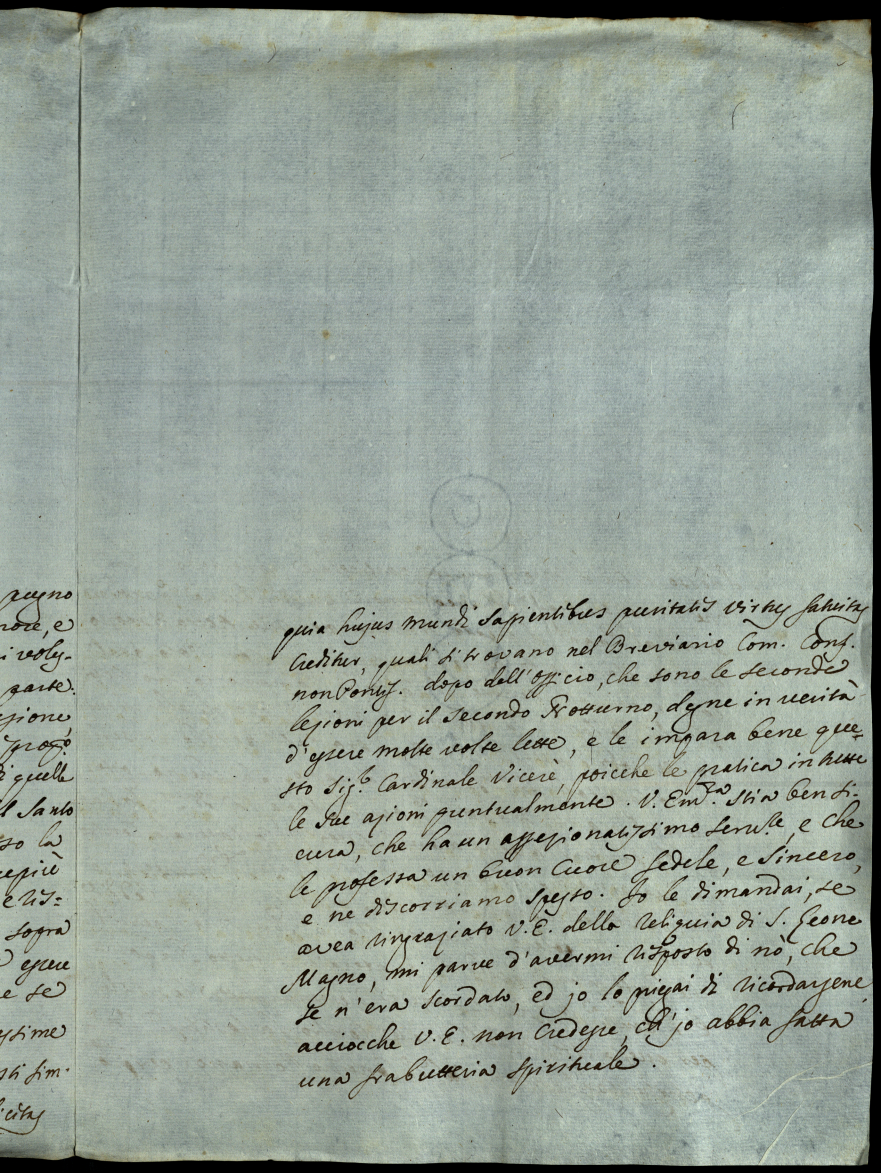 pugno
more, e
i volg-
parte.
gione,
prop.º
i quelle
l Santo
so la
e più
e ris=
sopra
essere
e se
ssime
sti sim-
licitas
quia hujus mundi sapientibus puritatis virtus fatuitas
creditur, quali si trovano nel Breviario Com. Conf.
non Pontif. dopo dell'officio, che sono le seconde
lezioni per il secondo Notturno, degne in verità
d'essere molte volte lette, e le impara bene que-
sto Sig.r Cardinale Vicerè, poicche le pratica in tutte
le sue azioni puntualmente. V. Em.za stia ben si-
cura, che ha un affezionatissimo serv.re, e che
le professa un buon cuore fedele, e sincero,
e ne discorriamo spesso. Jo le dimandai, se
avea ringraziato V. E. della reliquia di S. Leone
Magno, mi parve d'avermi risposto di nò, che
se n'era scordato, ed jo lo pregai di ricordarsene,
acciocche V. E. non credesse, ch'jo abbia fatta
una frabutteria spirituale.